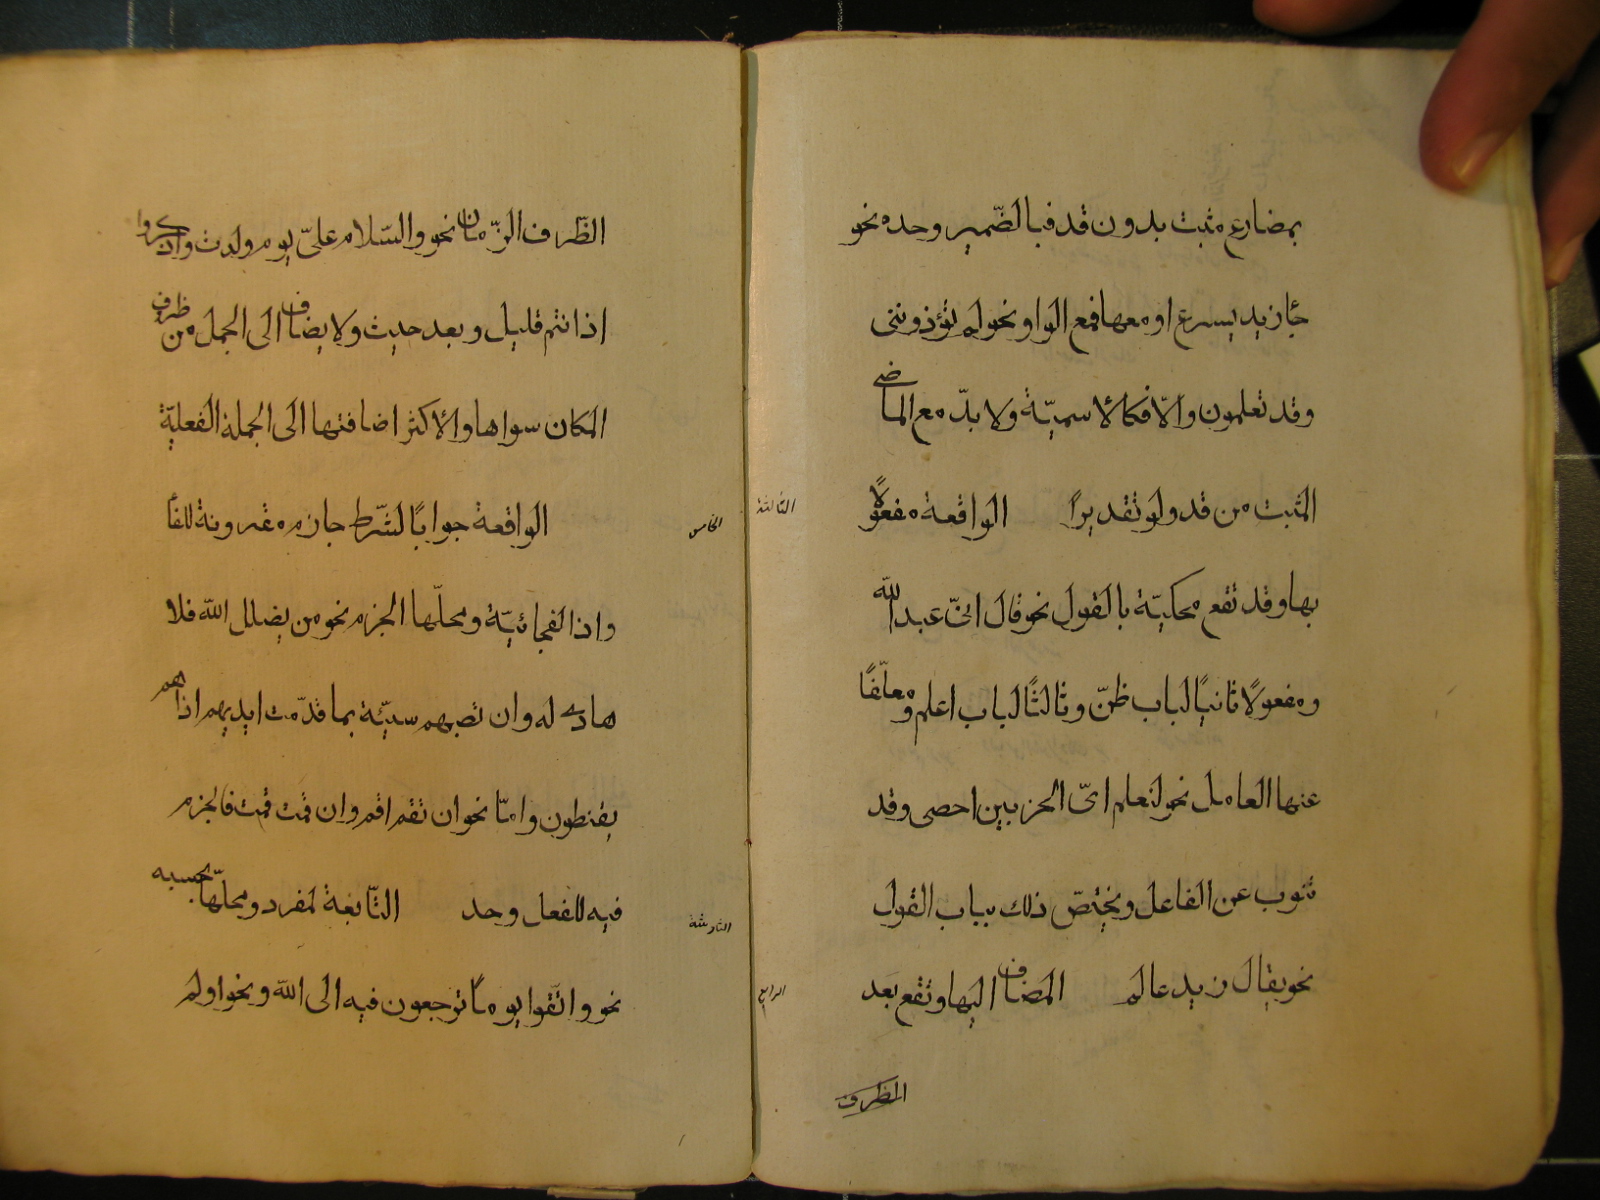 بمضارع مثبت بدون قد فبالضّمير وحده نحو
جاٰ زيد يسرع او معها فمع الواو نحو لم تؤذونني
وقد تعلمون والّا فكالاسميّة ولا بدّ مع الماضى
المثبت من قد ولو تقديرًا الواقعة مفعولًا
الثالثة
بها وقد تقع محكيّة بالقول نحو قال انّى عبد اللّه
ومفعولًا ثانيًا لباب ظنّ وثالثًا لباب اعلم ومعلّقًا
عنها العامل نحو لنعلم اىّ الحزبين احصى وقد
تنوب عن الفاعل ويختصّ ذلك بباب القول
نحو يقال زيد عالم المضاف اليها وتقع بعد
الرابع
الظرف
الظّرف الزّمان نحو والسّلام علىّ يوم ولدت واذكروا
اذ انتم قليل وبعد حيث ولا يضاف الى الجمل من ظرف
المكان سواها والاكثر اضافتها الى الجملة الفعليّة
الواقعة جوابًا لشّرط جازم مقرونة للفاٰ
الخامس
واذا لفجائيّة ومحلّها الجزم نحو من يضلل اللّه فلا
هادى له وان تصبهم سيّئة بما قدّمت ايديهم اذا هم
يقنطون وامّا نحو ان تقم اقم وان قمت قمت فالجزم
فيه للفعل وحد التّابعة لمفرد ومحلّها بحسبه
نحو واتّقوا يومًا ترجعون فيه الى اللّه ونحو اولم